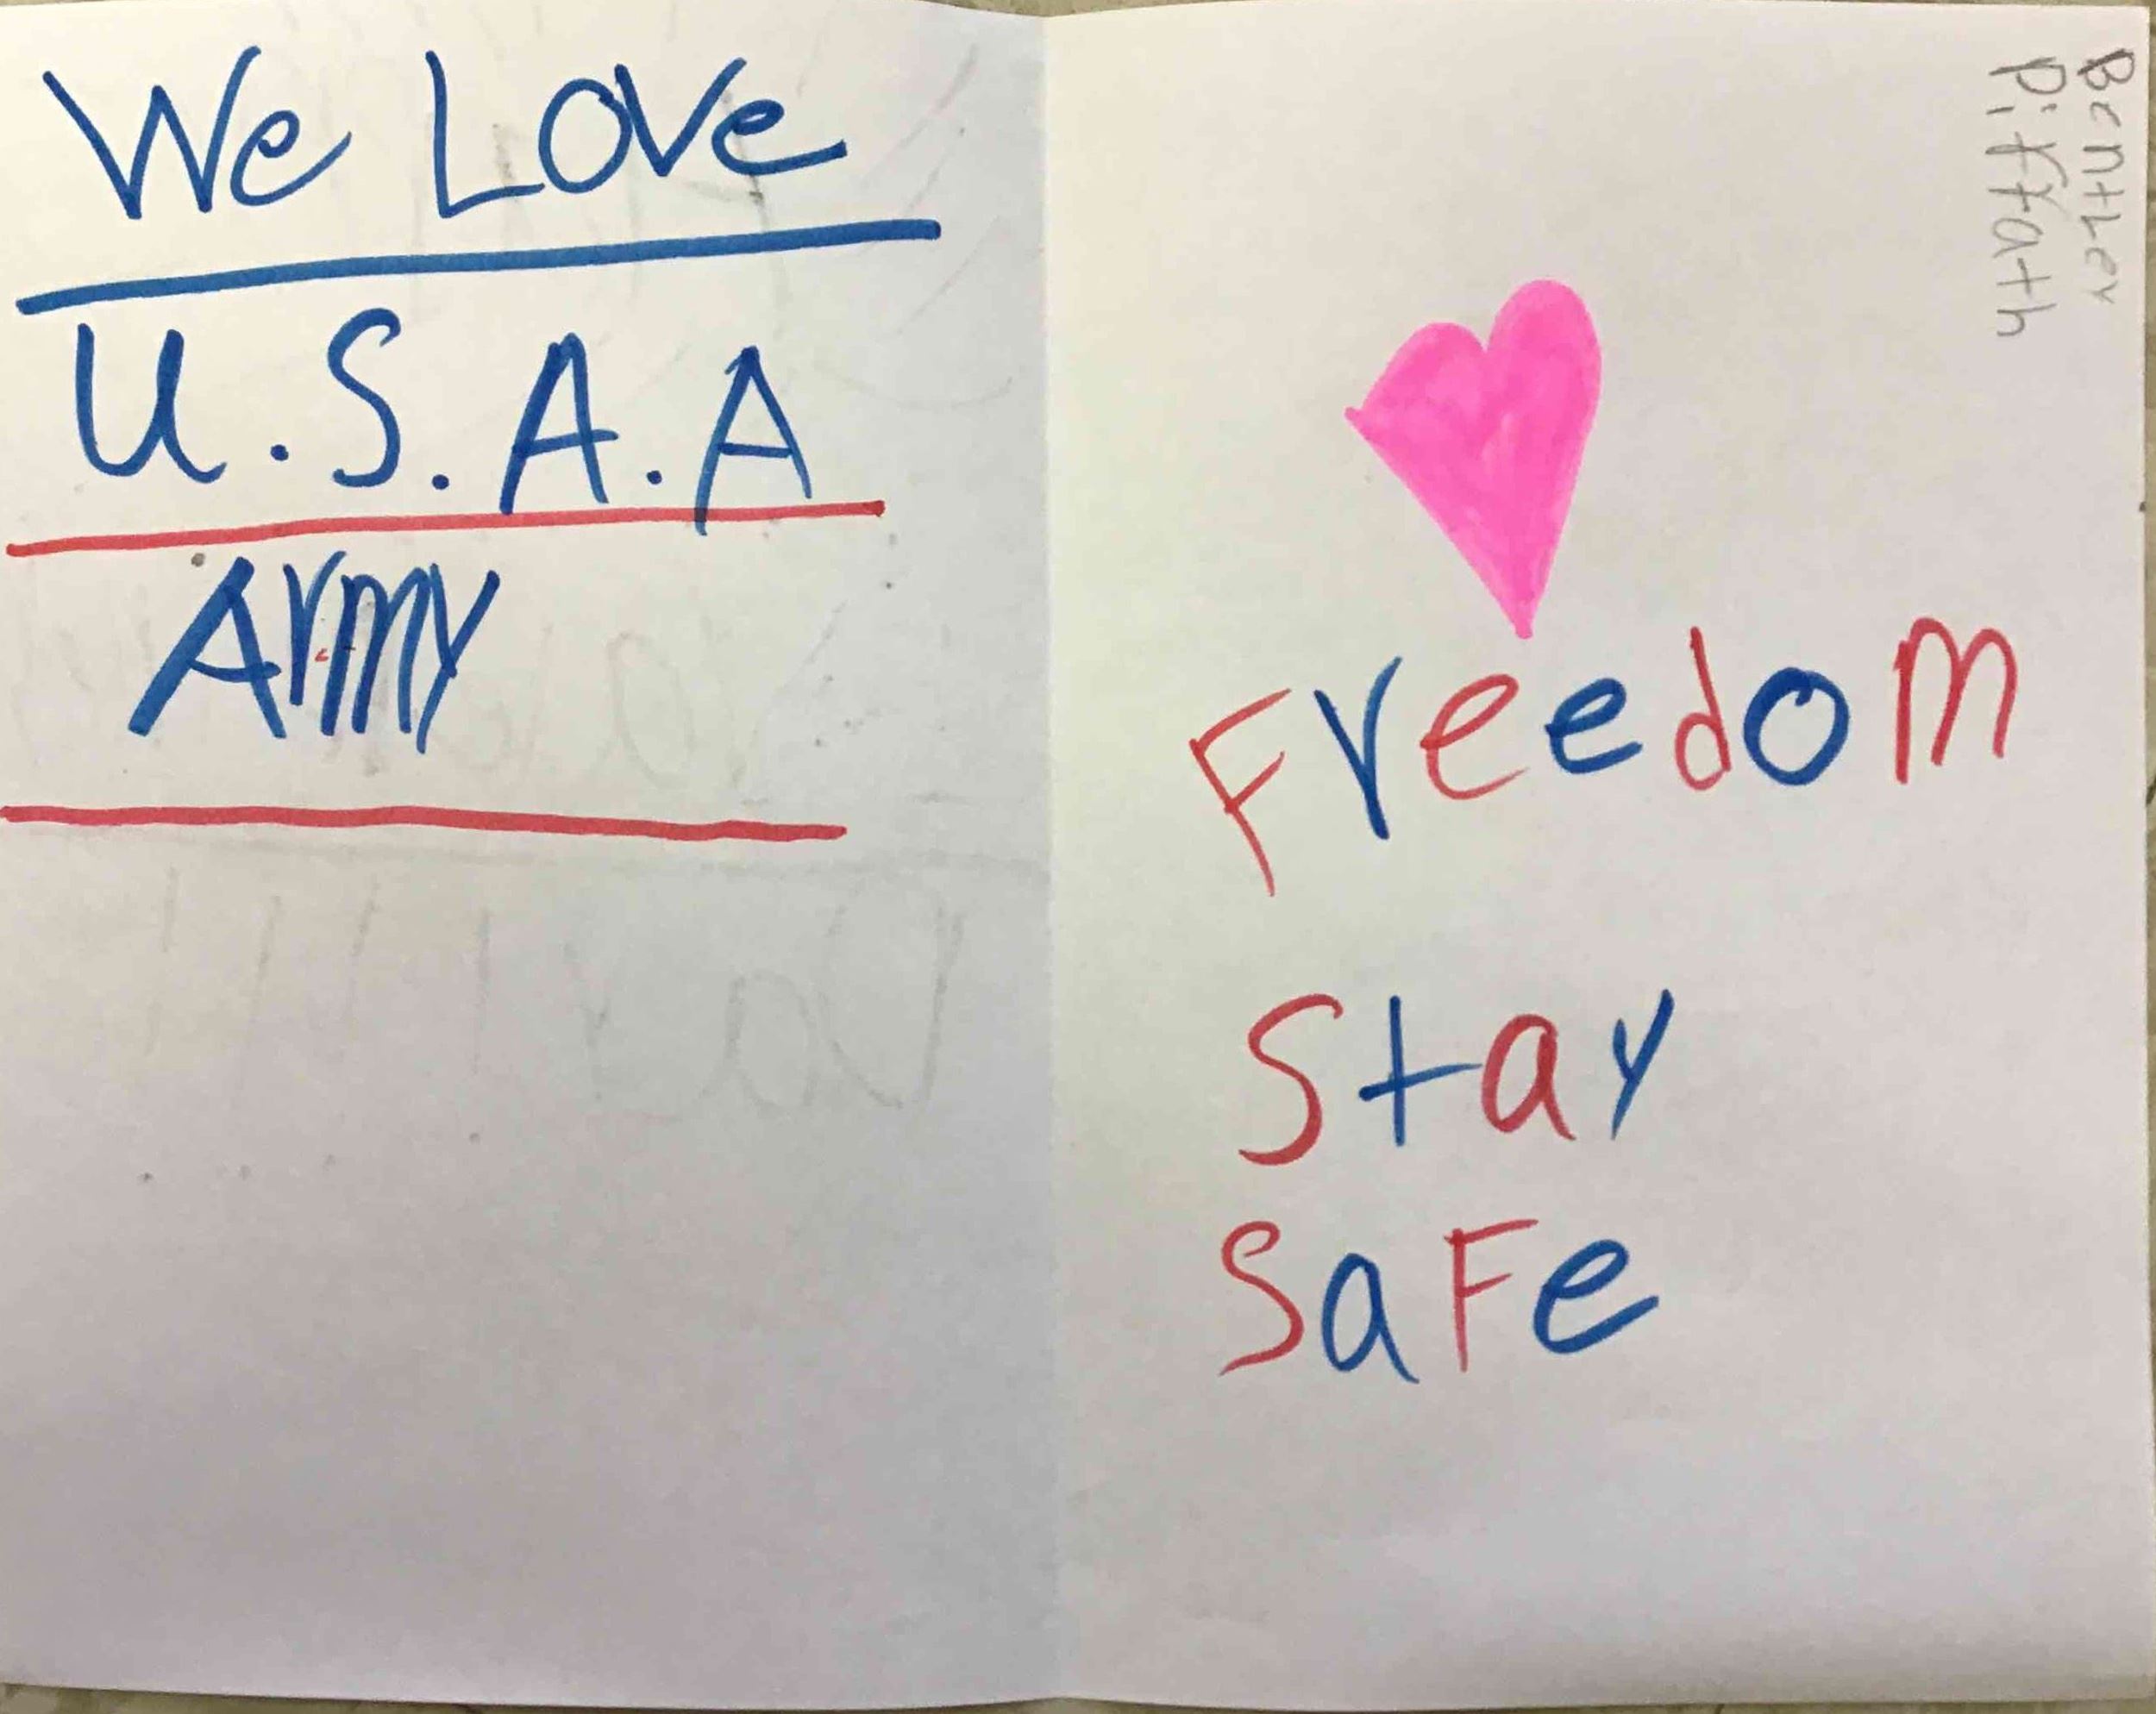 We Love
U.S.A.A
Army
Freedom
Stay
Safe
Bentley